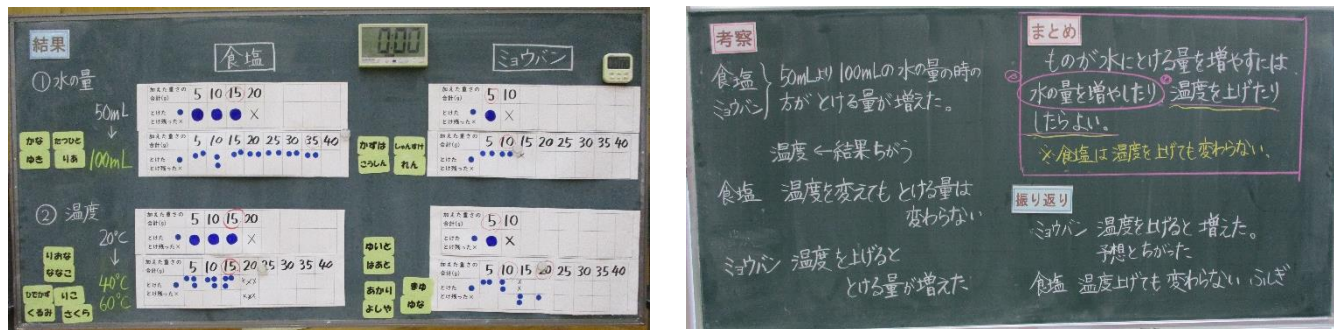 結果
食塩
0:00
ミョウバン
①水の量
50mL
↓
100mL
かな
たつひと
ゆき
りあ
加えた重さの合計(g) 5 10 15 20
とけた ●
とけ残った× ● ● ● ×
加えた重さの合計(g) 5 10 15 20 25 30 35 40
とけた ●
とけ残った×
かずは
しゅんすけ
こうしん
れん
加えた重さの合計(g) 5 10
とけた ●
とけ残った× ● ×
加えた重さの合計(g) 5 10 15 20 25 30 35 40
とけた ●
とけ残った×
② 温度
20℃
↓
40℃
60℃
りおな
ななこ
ひでかず
りこ
くるみ
さくら
加えた重さの合計(g) 5 10 15 20
とけた ●
とけ残った× ● ● ● ×
加えた重さの合計(g) 5 10 15 20 25 35 30 40
とけた ●
とけ残った×
ゆいと
はあと
あかり
まゆ
よしや
ゆな
加えた重さの合計(g) 5 10
とけた ●
とけ残った× ● ×
加えた重さの合計(g) 5 10 15 20 25 30 35 40
とけた ●
とけ残った×
考察
食塩
ミョウバン
50mLより100mLの水の量の時の
方がとける量が増えた。
温度←結果ちがう
食塩 温度を変えてもとける量は
変わらない
ミョウバン 温度を上げると
とける量が増えた
まとめ
ものが水にとける量を増やすには
水の量を増やしたり 温度を上げたり
したらよい。
※食塩は温度を上げても変わらない。
振り返り
ミョウバン 温度を上げると増えた。
予想とちがった
食塩 温度上げても変わらない ふしぎ